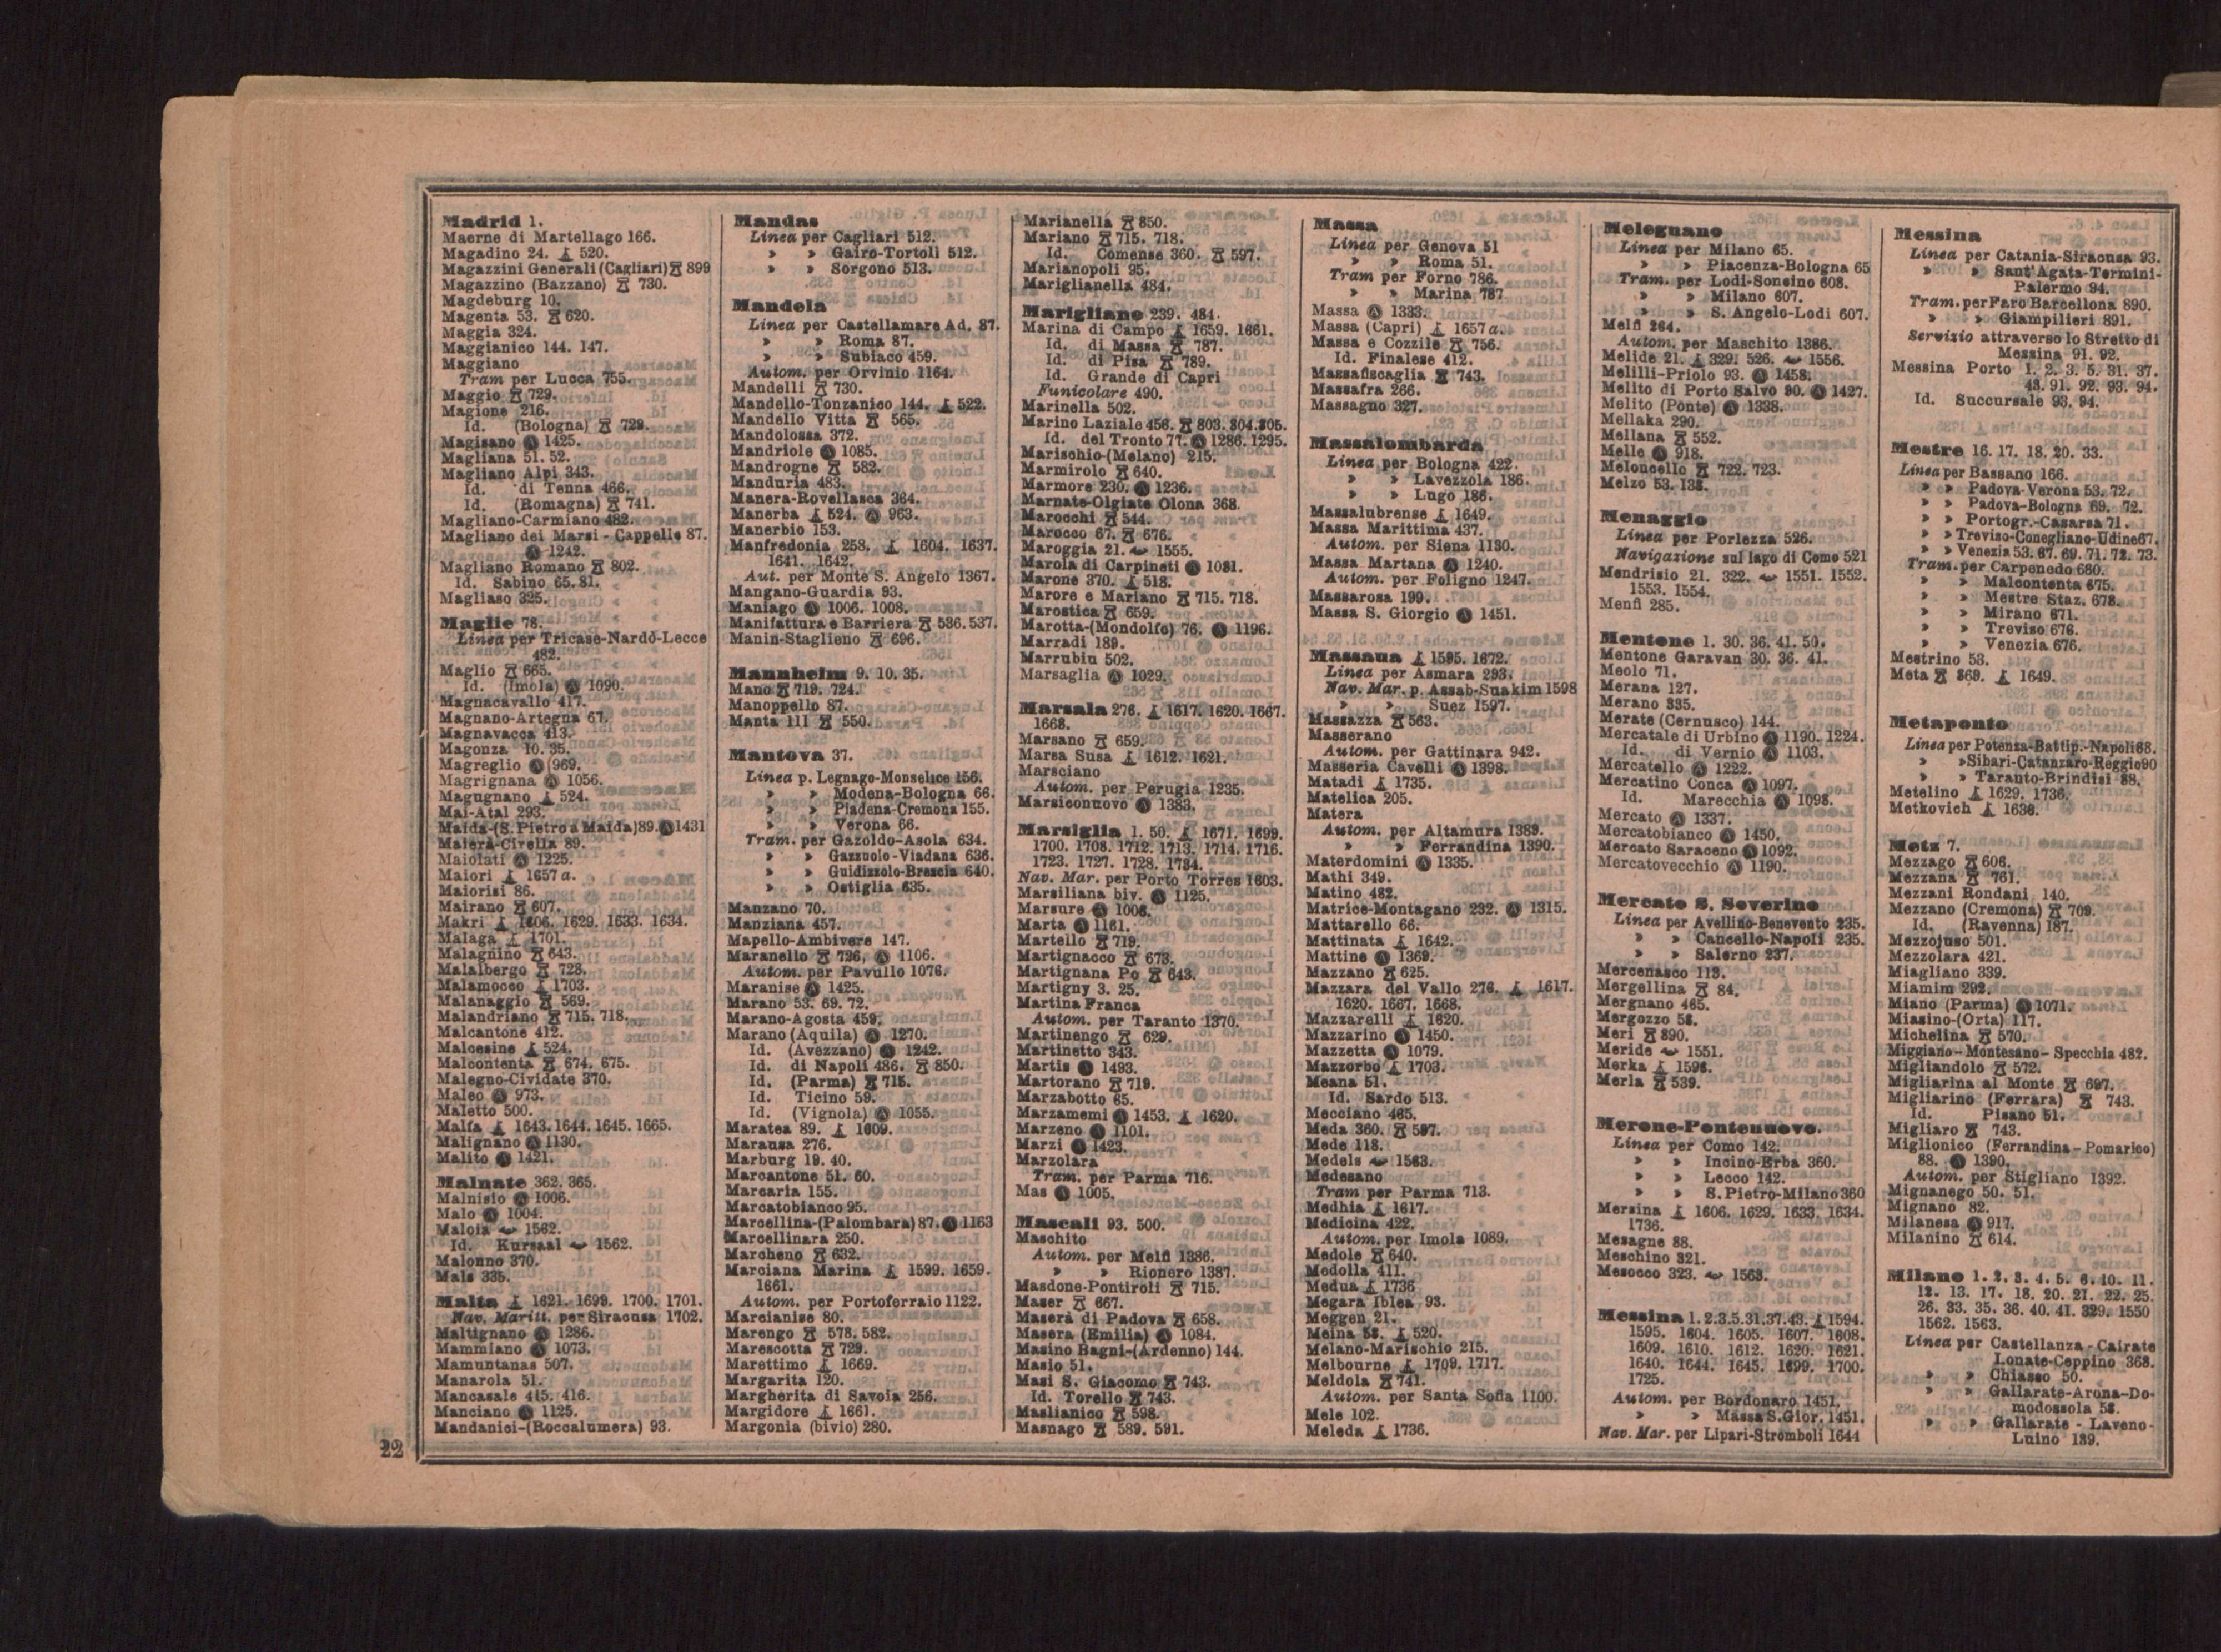 Madrid 1.
Maerne di Martellago 166.
Magadino 24. 520.
Magazzini Generali (Cagliari) 899
Magazzino (Bazzano) 730.
Magdeburg 10.
Magenta 53. 620.
Maggia 324.
Maggianico 144. 147.
Maggiano
Tram per Lucca 755.
Maggio 729.
Magione 216.
Id. (Bologna) 729.
Magisano 1425.
Magliana 51. 52.
Magliano Alpi 343.
Id. di Tenna 466.
Id. (Romagna) 741.
Magliano-Carmiano 482.
Magliano dei Marsi - Cappelle 87.
1242.
Magliano Romano 802.
Id. Sabino 65. 81.
Magliaso 325.
Maglie 78.
Linea per Tricase-Nardò-Lecce
482.
Maglio 665.
Id. (Imola) 1090.
Magnacavallo 417.
Magnano-Artegna 67.
Magnavacca 413.
Magonza 10. 35.
Magreglio 969.
Magrignana 1056.
Magugnano 524.
Mai-Atal 293.
Maida-(S. Pietro a Maida) 89. 1431
Maierà-Cirella 89.
Maiolati 1225.
Maiori 1657 a.
Maiorisi 86.
Mairano 607.
Makri 1606. 1629. 1633. 1634.
Malaga 1701.
Malagnino 643.
Malalbergo 728.
Malamocco 1703.
Malanaggio 569.
Malandriano 715. 718.
Malcantone 412.
Malcesine 524.
Malcontenta 674. 675.
Malegno-Cividate 370.
Maleo 973.
Maletto 500.
Malfa 1643. 1644. 1645. 1665.
Malignano 1130.
Malito 1421.
Malnate 362. 365.
Malnisio 1006.
Malo 1004.
Maloia 1562.
Id. Kursaal 1562.
Malonno 370.
Mals 335.
Malta 1621. 1699. 1700. 1701.
Nav. Maritt. per Siracusa 1702.
Maltignano 1286.
Mammiano 1073.
Mamuntanas 507.
Manarola 51.
Mancasale 415. 416.
Manciano 1125.
Mandanici-(Roccalumera) 93.
Mandas
Linea per Cagliari 512.
» » Gairo-Tortolì 512.
» » Sorgono 513.
Mandela
Linea per Castellamare Ad. 87.
» » Roma 87.
» » Subiaco 459.
Autom. per Orvinio 1164.
Mandelli 730.
Mandello-Tonzanico 144. 522.
Mandello Vitta 565.
Mandolossa 372.
Mandriole 1085.
Mandrogne 582.
Manduria 483.
Manera-Rovellasca 364.
Manerba 524. 963.
Manerbio 153.
Manfredonia 258. 1604. 1637.
1641. 1642.
Aut. per Monte S. Angelo 1367.
Mangano-Guardia 93.
Maniago 1006. 1008.
Manifattura e Barriera 536. 537.
Manin-Staglieno 696.
Mannheim 9. 10. 35.
Mano 719. 724.
Manoppello 87.
Manta 111 550.
Mantova 37.
Linea p. Legnago-Monselice 156.
» » Modena-Bologna 66.
» » Piadena-Cremona 155.
» » Verona 66.
Tram. per Gazoldo-Asola 634.
» » Gazzuolo-Viadana 636.
» » Guidizzolo-Brescia 640.
» » Ostiglia 635.
Manzano 70.
Manziana 457.
Mapello-Ambivere 147.
Maranello 726, 1106.
Autom. per Pavullo 1076.
Maranise 1425.
Marano 53. 69. 72.
Marano-Agosta 459.
Marano (Aquila) 1270.
Id. (Avezzano) 1242.
Id. di Napoli 486. 850.
Id. (Parma) 715.
Id. Ticino 59.
Id. (Vignola) 1055.
Maratea 89. 1609.
Marausa 276.
Marburg 19. 40.
Marcantone 51. 60.
Marcaria 155.
Marcatobianco 95.
Marcellina-(Palombara) 87. 1163
Marcellinara 250.
Marcheno 632.
Marciana Marina 1599. 1659.
1661.
Autom. per Portoferraio 1122.
Marcianise 80.
Marengo 578. 582.
Marescotta 729.
Marettimo 1669.
Margarita 120.
Margherita di Savoia 256.
Margidore 1661.
Margonia (bivio) 280.
Marianella 850.
Mariano 715. 718.
Id. Comense 360. 597.
Marianopoli 95.
Mariglianella 484.
Marigliano 239. 484.
Marina di Campo 1659. 1661.
Id. di Massa 787.
Id. di Pisa 789.
Id. Grande di Capri
Funicolare 490.
Marinella 502.
Marino Laziale 456. 803. 804. 805.
Id. del Tronto 77. 1286. 1295.
Marischio-(Melano) 215.
Marmirolo 640.
Marmore 230. 1236.
Marnate-Olgiate Olona 368.
Marocchi 544.
Marocco 67. 676.
Maroggia 21. 1555.
Marola di Carpineti 1081.
Marone 370. 518.
Marore e Mariano 715. 718.
Marostica 659.
Marotta-(Mondolfo) 76. 1196.
Marradi 189.
Marrubiu 502.
Marsaglia 1029.
Marsala 276. 1617. 1620. 1667.
1668.
Marsano 659.
Marsa Susa 1612. 1621.
Marsciano
Autom. per Perugia 1235.
Marsiconuovo 1383.
Marsiglia 1. 50. 1671. 1699.
1700. 1708. 1712. 1713. 1714. 1716.
1723. 1727. 1728. 1734.
Nav. Mar. per Porto Torres 1603.
Marsiliana biv. 1125.
Marsure 1006.
Marta 1161.
Martello 719.
Martignacco 673.
Martignana Po 643.
Martigny 3. 25.
Martina Franca
Autom. per Taranto 1370.
Martinengo 629.
Martinetto 343.
Martis 1493.
Martorano 719.
Marzabotto 65.
Marzamemi 1453. 1620.
Marzeno 1101.
Marzi 1423.
Marzolara
Tram. per Parma 716.
Mas 1005.
Mascali 93. 500.
Maschito
Autom. per Melfi 1386.
» » Rionero 1387.
Masdone-Pontiroli 715.
Maser 667.
Maserà di Padova 658.
Masera (Emilia) 1084.
Masino Bagni-(Ardenno) 144.
Masio 51.
Masi S. Giacomo 743.
Id. Torello 743.
Maslianico 598.
Masnago 589. 591.
Massa
Linea per Genova 51
» » Roma 51.
Tram per Forno 786.
» » Marina 787
Massa 1333.
Massa (Capri) 1657 a.
Massa e Cozzile 756.
Id. Finalese 412.
Massafiscaglia 743.
Massafra 266.
Massagno 327.
Massalombarda
Linea per Bologna 422.
» » Lavezzola 186.
» » Lugo 186.
Massalubrense 1649.
Massa Marittima 437.
Autom. per Siena 1130.
Massa Martana 1240.
Autom. per Foligno 1247.
Massarosa 199.
Massa S. Giorgio 1451.
Massaua 1595. 1672.
Linea per Asmara 293.
Nav. Mar. p. Assab-Suakim 1598
» » Suez 1597.
Massazza 563.
Masserano
Autom. per Gattinara 942.
Masseria Cavelli 1398.
Matadi 1735.
Matelica 205.
Matera
Autom. per Altamura 1389.
» » Ferrandina 1390.
Materdomini 1335.
Mathi 349.
Matino 482.
Matrice-Montagano 232. 1315.
Mattarello 66.
Mattinata 1642.
Mattine 1369.
Mazzano 625.
Mazzara del Vallo 276. 1617.
1620. 1667. 1668.
Mazzarelli 1620.
Mazzarino 1450.
Mazzetta 1079.
Mazzorbo 1703.
Meana 51.
Id. Sardo 513.
Mecciano 465.
Meda 360. 597.
Mede 118.
Medels 1563.
Medesano
Tram per Parma 713.
Medhia 1617.
Medicina 422.
Autom. per Imola 1089.
Medole 640.
Medolla 411.
Medua 1736
Megara Iblea 93.
Meggen 21.
Meina 58. 520.
Melano-Marischio 215.
Melbourne 1709. 1717.
Meldola 741.
Autom. per Santa Sofia 1100.
Mele 102.
Meleda 1736.
Melegnano
Linea per Milano 65.
» » Piacenza-Bologna 65
Tram. per Lodi-Soncino 608.
» » Milano 607.
» » S. Angelo-Lodi 607.
Melfi 264.
Autom. per Maschito 1386.
Melide 21. 329. 526. 1556.
Melilli-Priolo 93. 1458.
Melito di Porto Salvo 90. 1427.
Melito (Ponte) 1338.
Mellaka 290.
Mellana 552.
Melle 918.
Meloncello 722. 723.
Melzo 53. 138.
Menaggio
Linea per Porlezza 526.
Navigazione sul lago di Como 521
Mendrisio 21. 322. 1551. 1552.
1553. 1554.
Menfi 285.
Mentone 1. 30. 36. 41. 50.
Mentone Garavan 30. 36. 41.
Meolo 71.
Merana 127.
Merano 335.
Merate (Cernusco) 144.
Mercatale di Urbino 1190. 1224.
Id. di Vernio 1103.
Mercatello 1222.
Mercatino Conca 1097.
Id. Marecchia 1098.
Mercato 1337.
Mercatobianco 1450.
Mercato Saraceno 1092.
Mercatovecchio 1190.
Mercato S. Severino
Linea per Avellino-Benevento 235.
» » Cancello-Napoli 235.
» » Salerno 237.
Mercenasco 113.
Mergellina 84.
Mergnano 465.
Mergozzo 58.
Meri 890.
Meride 1551.
Merka 1596.
Merla 539.
Merone-Pontenuovo.
Linea per Como 142.
» » Incino-Erba 360.
» » Lecco 142.
» » S. Pietro-Milano 360
Mersina 1606. 1629. 1633. 1634.
1736.
Mesagne 88.
Meschino 321.
Mesocco 323. 1563.
Messina 1. 2. 3. 5. 31. 37. 43. 1594.
1595. 1604. 1605. 1607. 1608.
1609. 1610. 1612. 1620. 1621.
1640. 1644. 1645. 1699. 1700.
1725.
Autom. per Bordonaro 1451.
» » Massa S. Gior. 1451.
Nav. Mar. per Lipari-Stromboli 1644
Messina
Linea per Catania-Siracusa 93.
» » Sant'Agata-Termini-
Palermo 94.
Tram. per Faro Barcellona 890.
» » Giampilieri 891.
Servizio attraverso lo Stretto di
Messina 91. 92.
Messina Porto 1. 2. 3. 5. 31. 37.
43. 91. 92. 93. 94.
Id. Succursale 93. 94.
Mestre 16. 17. 18. 20. 33.
Linea per Bassano 166.
» » Padova-Verona 53. 72.
» » Padova-Bologna 69. 72.
» » Portogr.-Casarsa 71.
» » Treviso-Conegliano-Udine 67.
» » Venezia 53. 67. 69. 71. 72. 73.
Tram. per Carpenedo 680.
» » Malcontenta 675.
» » Mestre Staz. 678.
» » Mirano 671.
» » Treviso 676.
» » Venezia 676.
Mestrino 53.
Meta 869. 1649.
Metaponto
Linea per Potenza-Battip.-Napoli 88.
» » Sibari-Catanzaro-Reggio 90
» » Taranto-Brindisi 88.
Metelino 1629. 1736.
Metkovich 1636.
Metz 7.
Mezzago 606.
Mezzana 761.
Mezzani Rondani 140.
Mezzano (Cremona) 709.
Id. (Ravenna) 187.
Mezzojuso 501.
Mezzolara 421.
Miagliano 339.
Miamim 292.
Miano (Parma) 1071.
Miasino-(Orta) 117.
Michelina 570.
Miggiano-Montesano-Specchia 482.
Migliandolo 572.
Migliarina al Monte 697.
Migliarino (Ferrara) 743.
Id. Pisano 51.
Migliaro 743.
Miglionico (Ferrandina-Pomarico)
88. 1390.
Autom. per Stigliano 1392.
Mignanego 50. 51.
Mignano 82.
Milanesa 917.
Milanino 614.
Milano 1. 2. 3. 4. 5. 6. 10. 11.
12. 13. 17. 18. 20. 21. 22. 25.
26. 33. 35. 36. 40. 41. 329. 1550
1562. 1563.
Linea per Castellanza-Cairate
Lonate-Ceppino 368.
» » Chiasso 50.
» » Gallarate-Arona-Do-
modossola 58.
» » Gallarate - Laveno-
Luino 139.
22